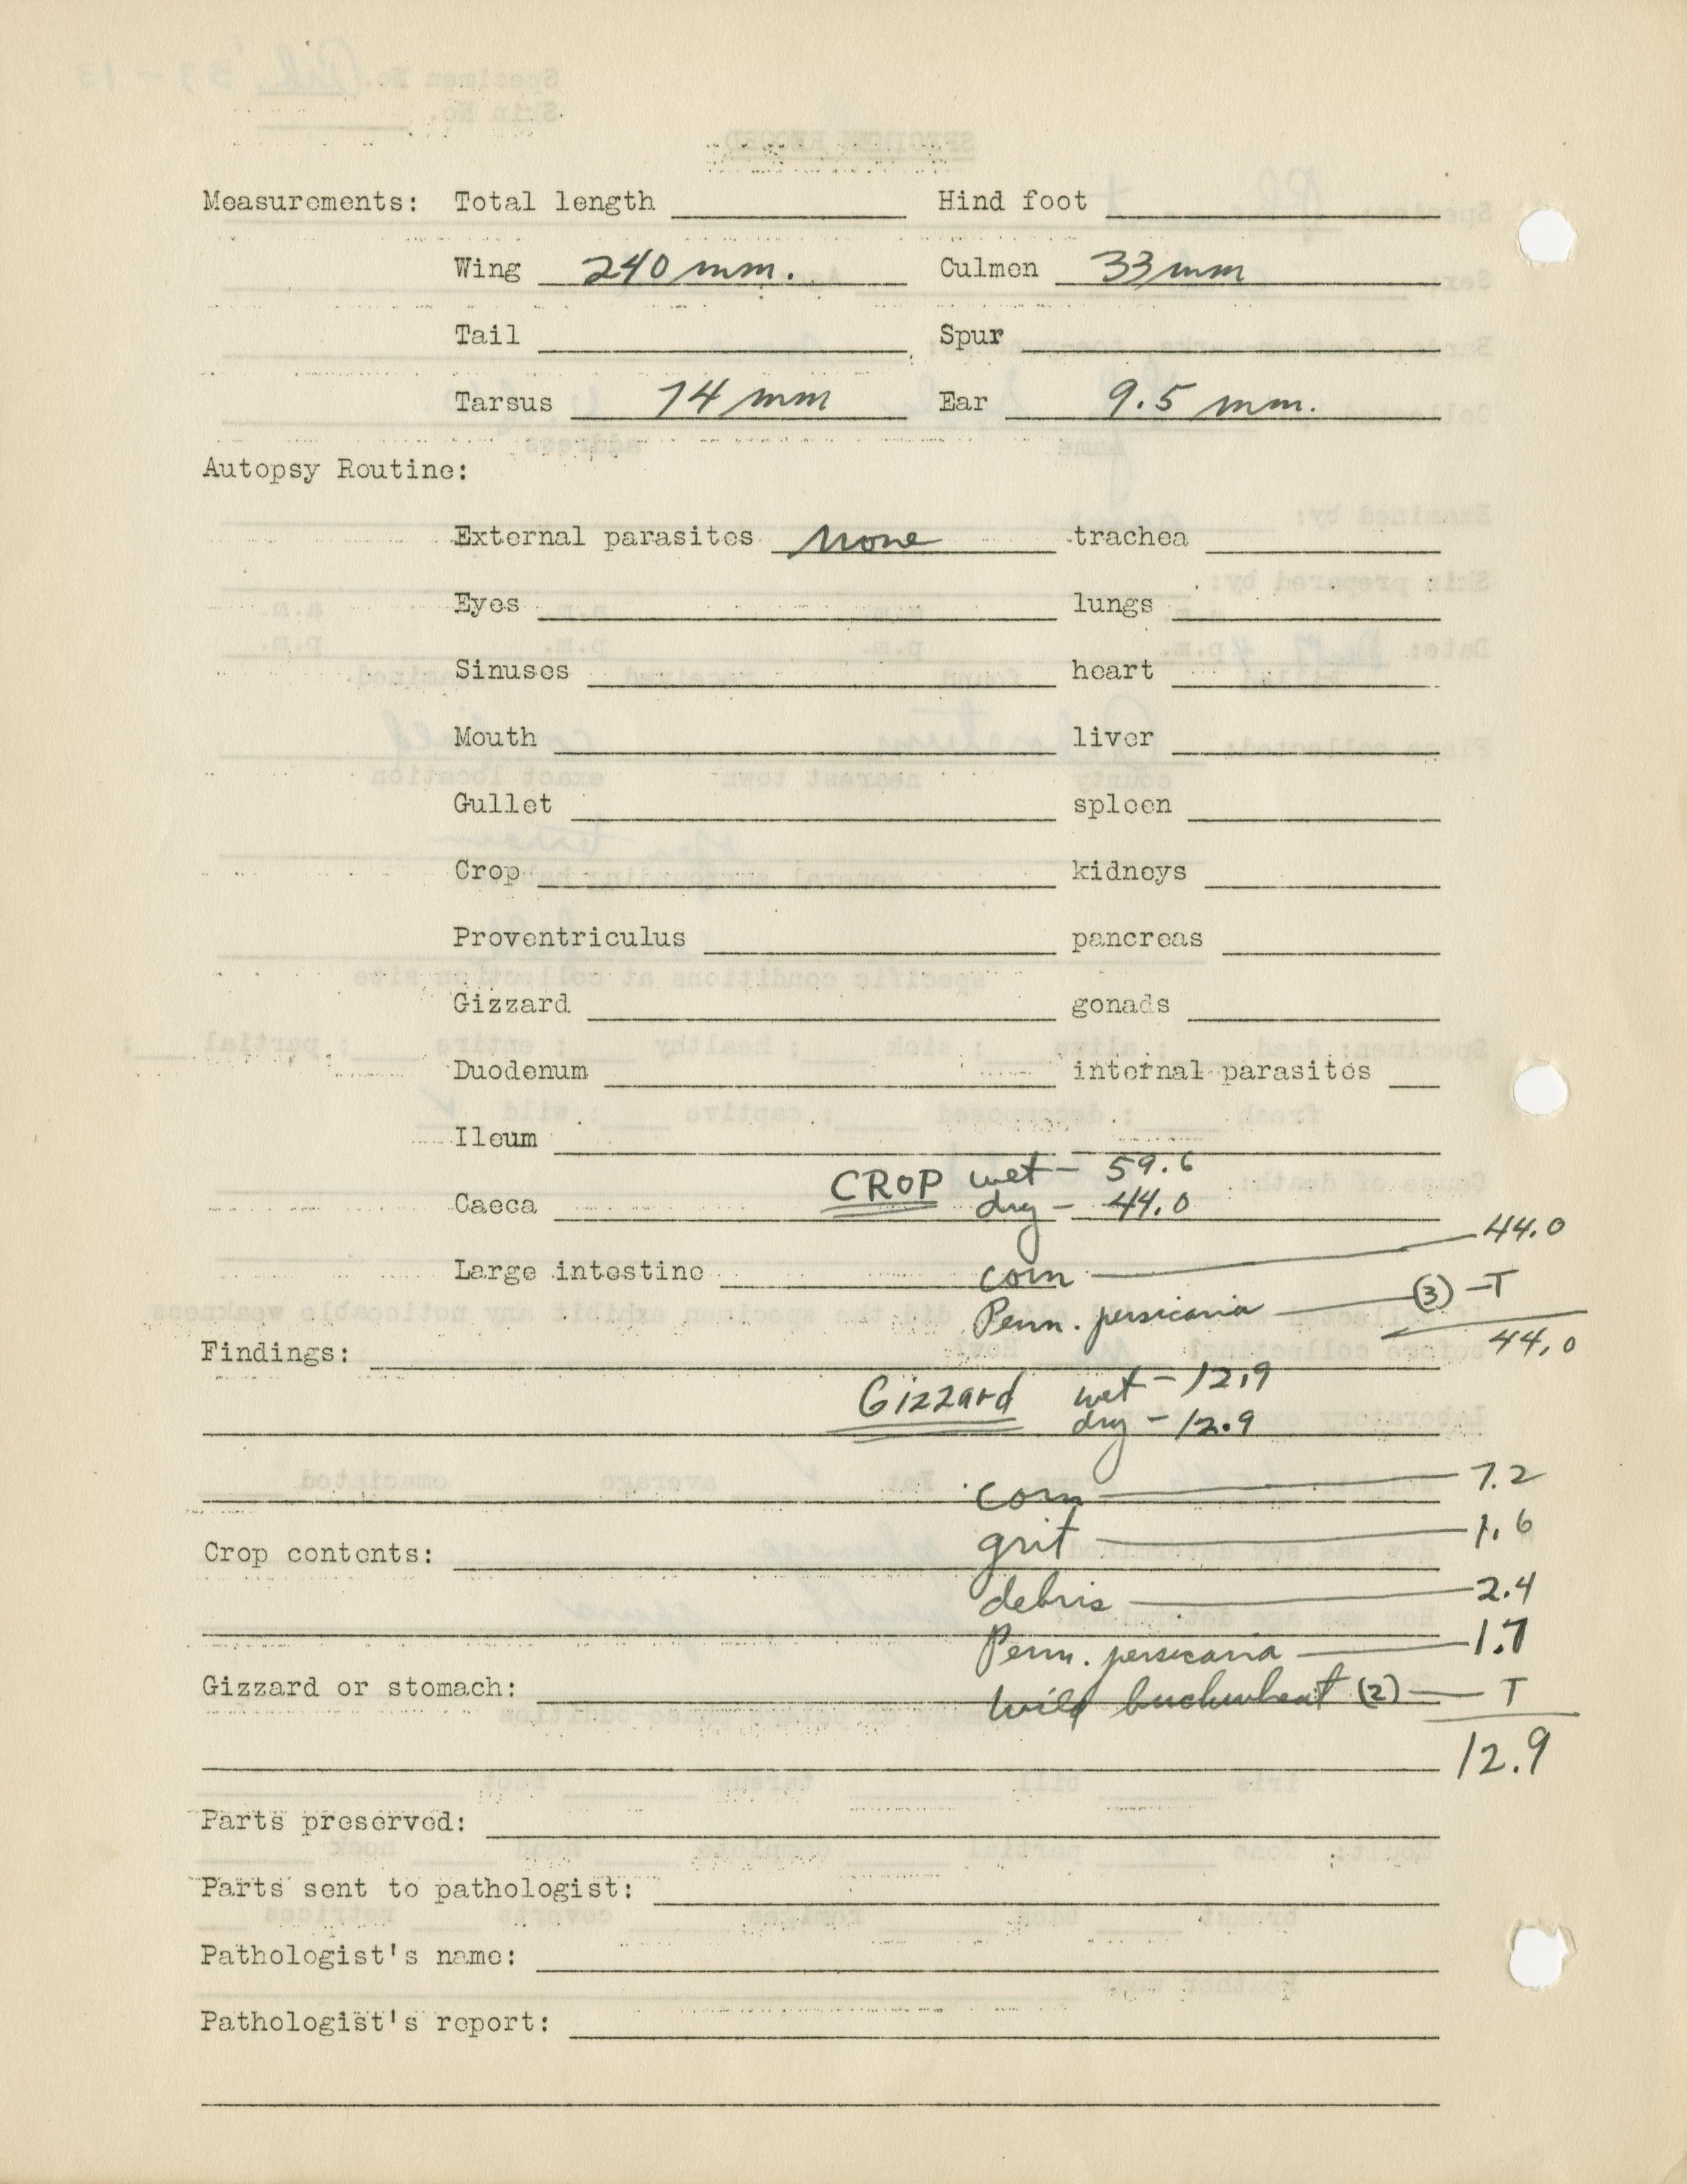 Measurements: Total length ____ Hind foot ____
Wing 240 mm. Culmen 33 mm
Tail ____ Spur ____
Tarsus 74 mm Ear 9.5 mm.
Autopsy Routine:
External parasites None trachea ____
Eyes ____ lungs ____
Sinuses ____ heart ____
Mouth ____ liver ____
Gullet ____ spleen ____
Crop ____ kidneys ____
Proventriculus ____ pancreas ____
Gizzard ____ gonads ____
Duodenum ____ internal parasites ____
Ileum ____
CROP wet - 59.6
Caeca ____ dry - 44.0
Large intestine ____ corn — 44.0
Penn. persicaria — (3) - T
Findings: ____ 44.0
Gizzard wet - 12.9
dry - 12.9
corn — 7.2
grit — 1.6
Crop contents: ____
debris — 2.4
Penn. persicaria — 1.7
Gizzard or stomach: ____ wild buckwheat (2) — T
12.9
Parts preserved: ____
Parts sent to pathologist: ____
Pathologist's name: ____
Pathologist's report: ____